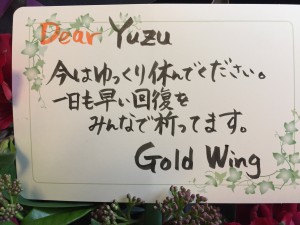 Dear Yuzu
今はゆっくり休んでください。
一日も早い回復を
みんなで祈ってます。
Gold Wing